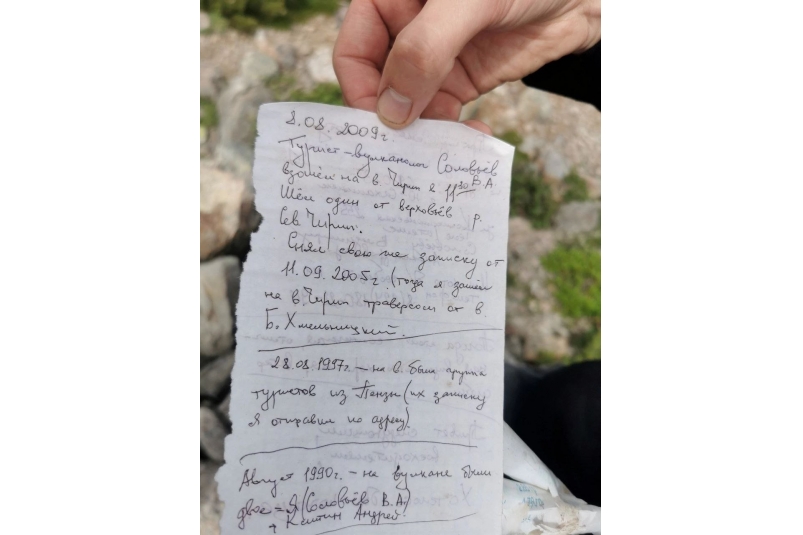 8.08.2009г.
Турист-вулканолог Соловьёв
В.А.
взошёл на в. Чирип в 11³⁰
Шёл один от верховьев р.
Сев. Чирип.
Снял свою же записку от
11.09.2005г. (тогда я зашёл
на в. Чирип траверсом от в.
Б. Хмельницкий.
28.08.1997г. – на в. была группа
туристов из Пензы (их записку
я отправил по адресу).
Август 1990г. – на вулкане были
двое = Я (Соловьёв В.А.)
+ Андрей